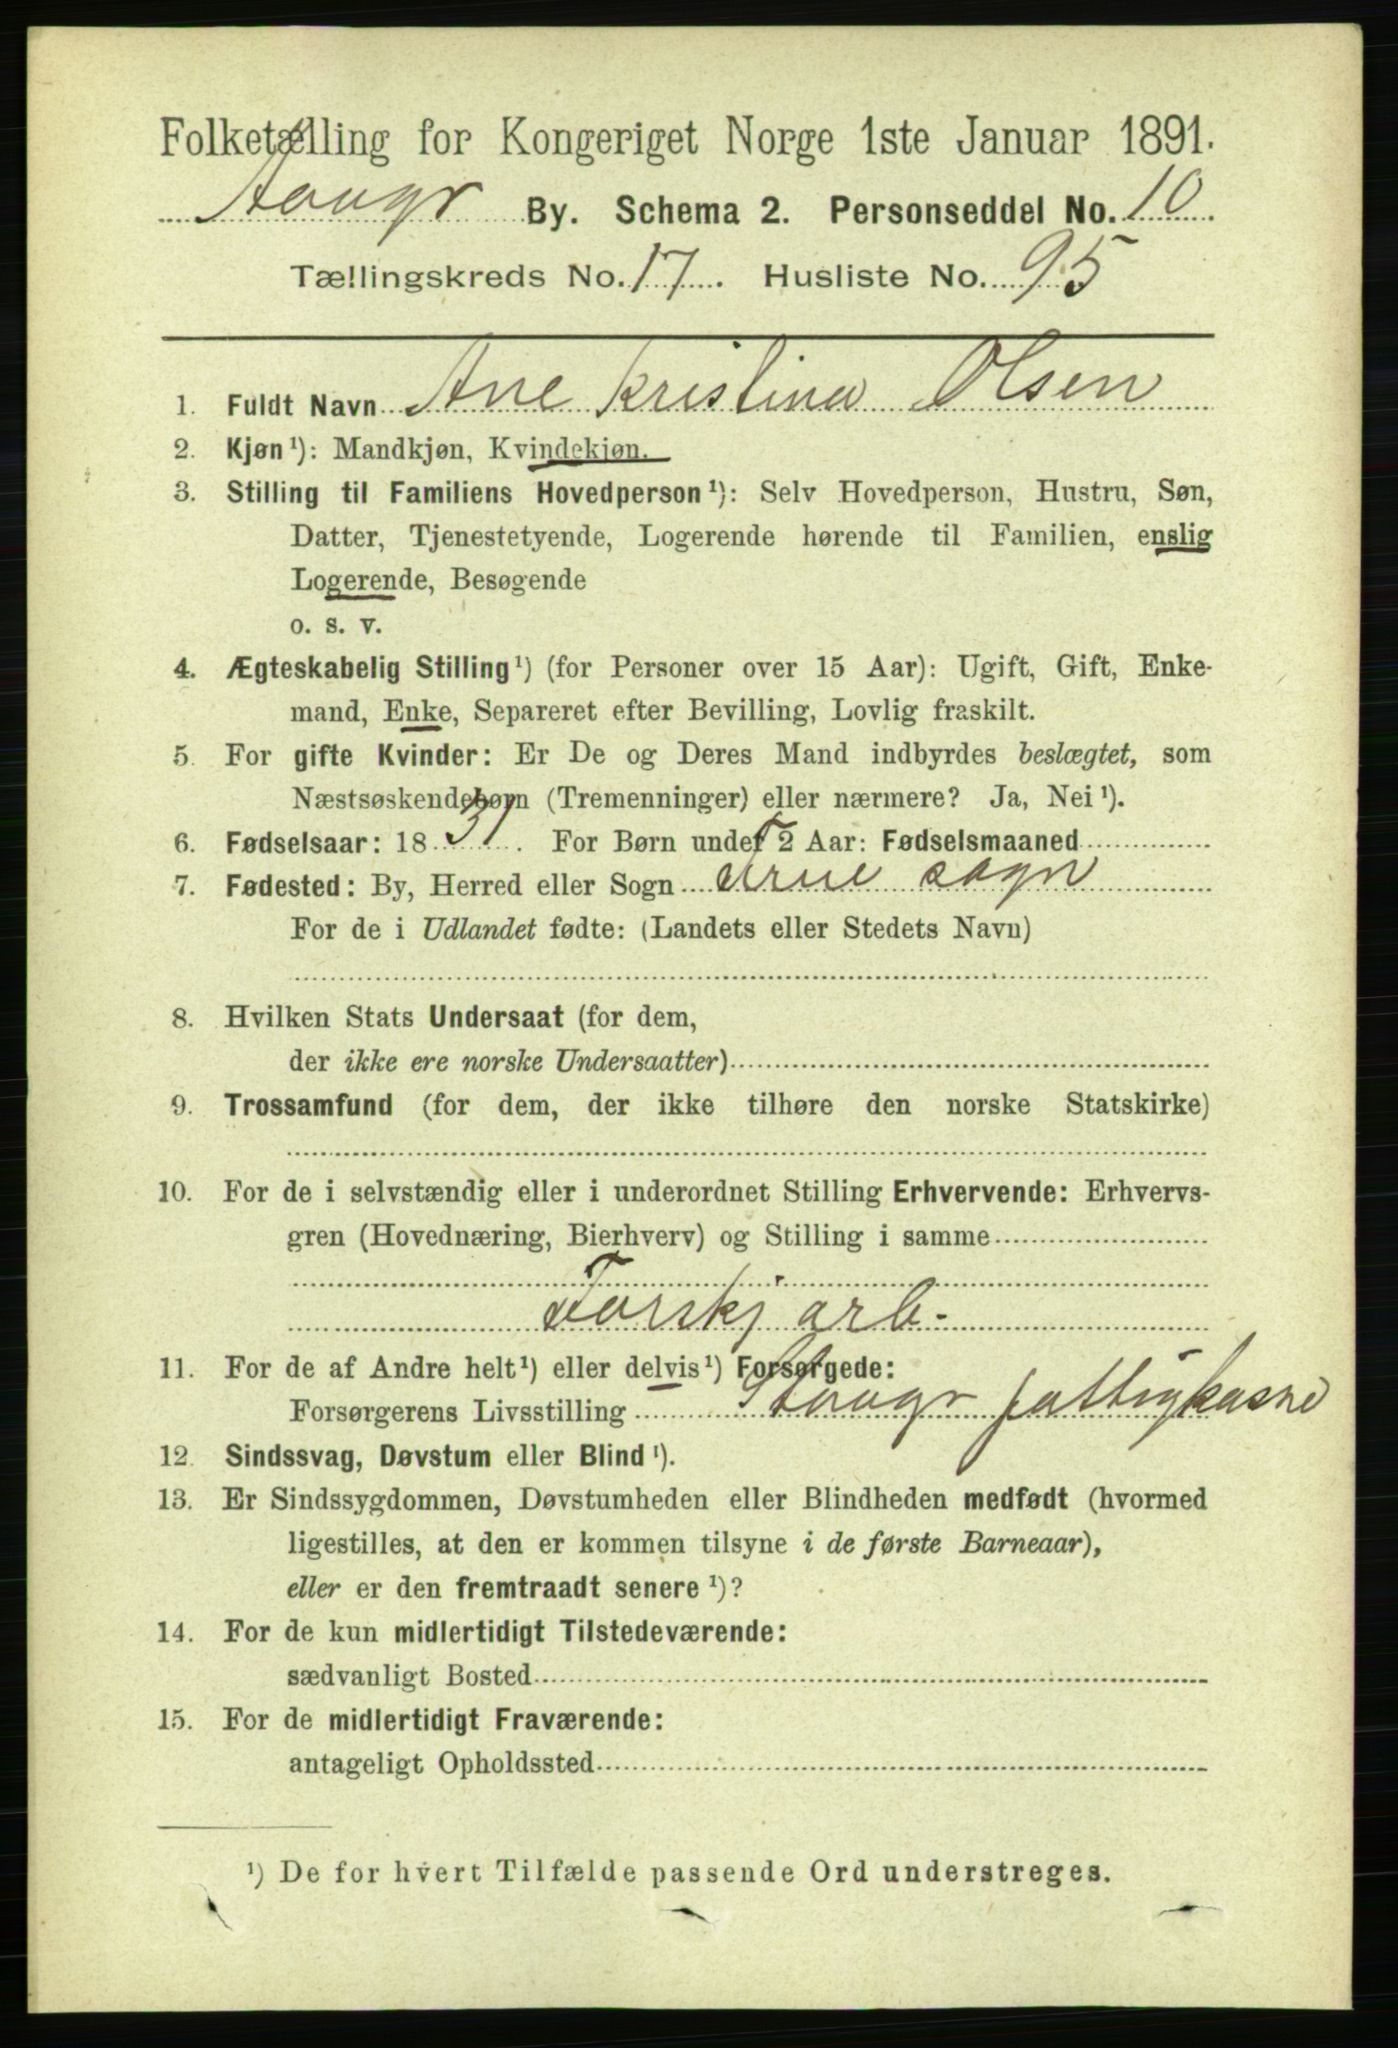 Folketælling for Kongeriget Norge 1ste Januar 1891.
By. Schema 2. Personseddel No. 10
Tællingskreds No. 17. Husliste No. 95
1. Fuldt Navn Ane Kristina Olsen
2. Kjøn¹): Mandkjøn, Kvindekjøn.
3. Stilling til Familiens Hovedperson¹): Selv Hovedperson, Hustru, Søn,
Datter, Tjenestetyende, Logerende hørende til Familien, enslig
Logerende, Besøgende
o. s. v.
4. Ægteskabelig Stilling¹) (for Personer over 15 Aar): Ugift, Gift, Enke-
mand, Enke, Separeret efter Bevilling, Lovlig fraskilt.
5. For gifte Kvinder: Er De og Deres Mand indbyrdes beslægtet, som
Næstsøskendebørn (Tremenninger) eller nærmere? Ja, Nei¹).
6. Fødselsaar: 1831. For Børn under 2 Aar: Fødselsmaaned
7. Fødested: By, Herred eller Sogn sogn
For de i Udlandet fødte: (Landets eller Stedets Navn)
8. Hvilken Stats Undersaat (for dem,
der ikke ere norske Undersaatter)
9. Trossamfund (for dem, der ikke tilhøre den norske Statskirke)
10. For de i selvstændig eller i underordnet Stilling Erhvervende: Erhvervs-
gren (Hovednæring, Bierhverv) og Stilling i samme
Forskj arb.
11. For de af Andre helt¹) eller delvis¹) Forsørgede:
Forsørgerens Livsstilling fattigkasse
12. Sindssvag, Døvstum eller Blind¹).
13. Er Sindssygdommen, Døvstumheden eller Blindheden medfødt (hvormed
ligestilles, at den er kommen tilsyne i de første Barneaar),
eller er den fremtraadt senere¹)?
14. For de kun midlertidigt Tilstedeværende:
sædvanligt Bosted
15. For de midlertidigt Fraværende:
antageligt Opholdssted
¹) De for hvert Tilfælde passende Ord understreges.